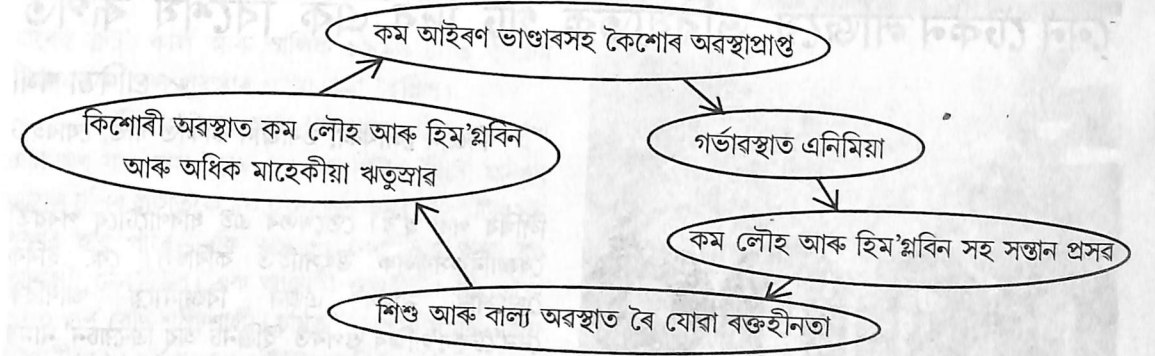 কম আইৰণ ভাণ্ডাৰসহ কৈশোৰ অৱস্থাপ্ৰাপ্ত
গৰ্ভাৱস্থাত এনিমিয়া
কম লৌহ আৰু হিম'গ্লবিন সহ সন্তান প্ৰসৱ
শিশু আৰু বাল্য অৱস্থাত ৰৈ যোৱা ৰক্তহীনতা
কিশোৰী অৱস্থাত কম লৌহ আৰু হিম'গ্লবিন
আৰু অধিক মাহেকীয়া ঋতুস্ৰাৱ